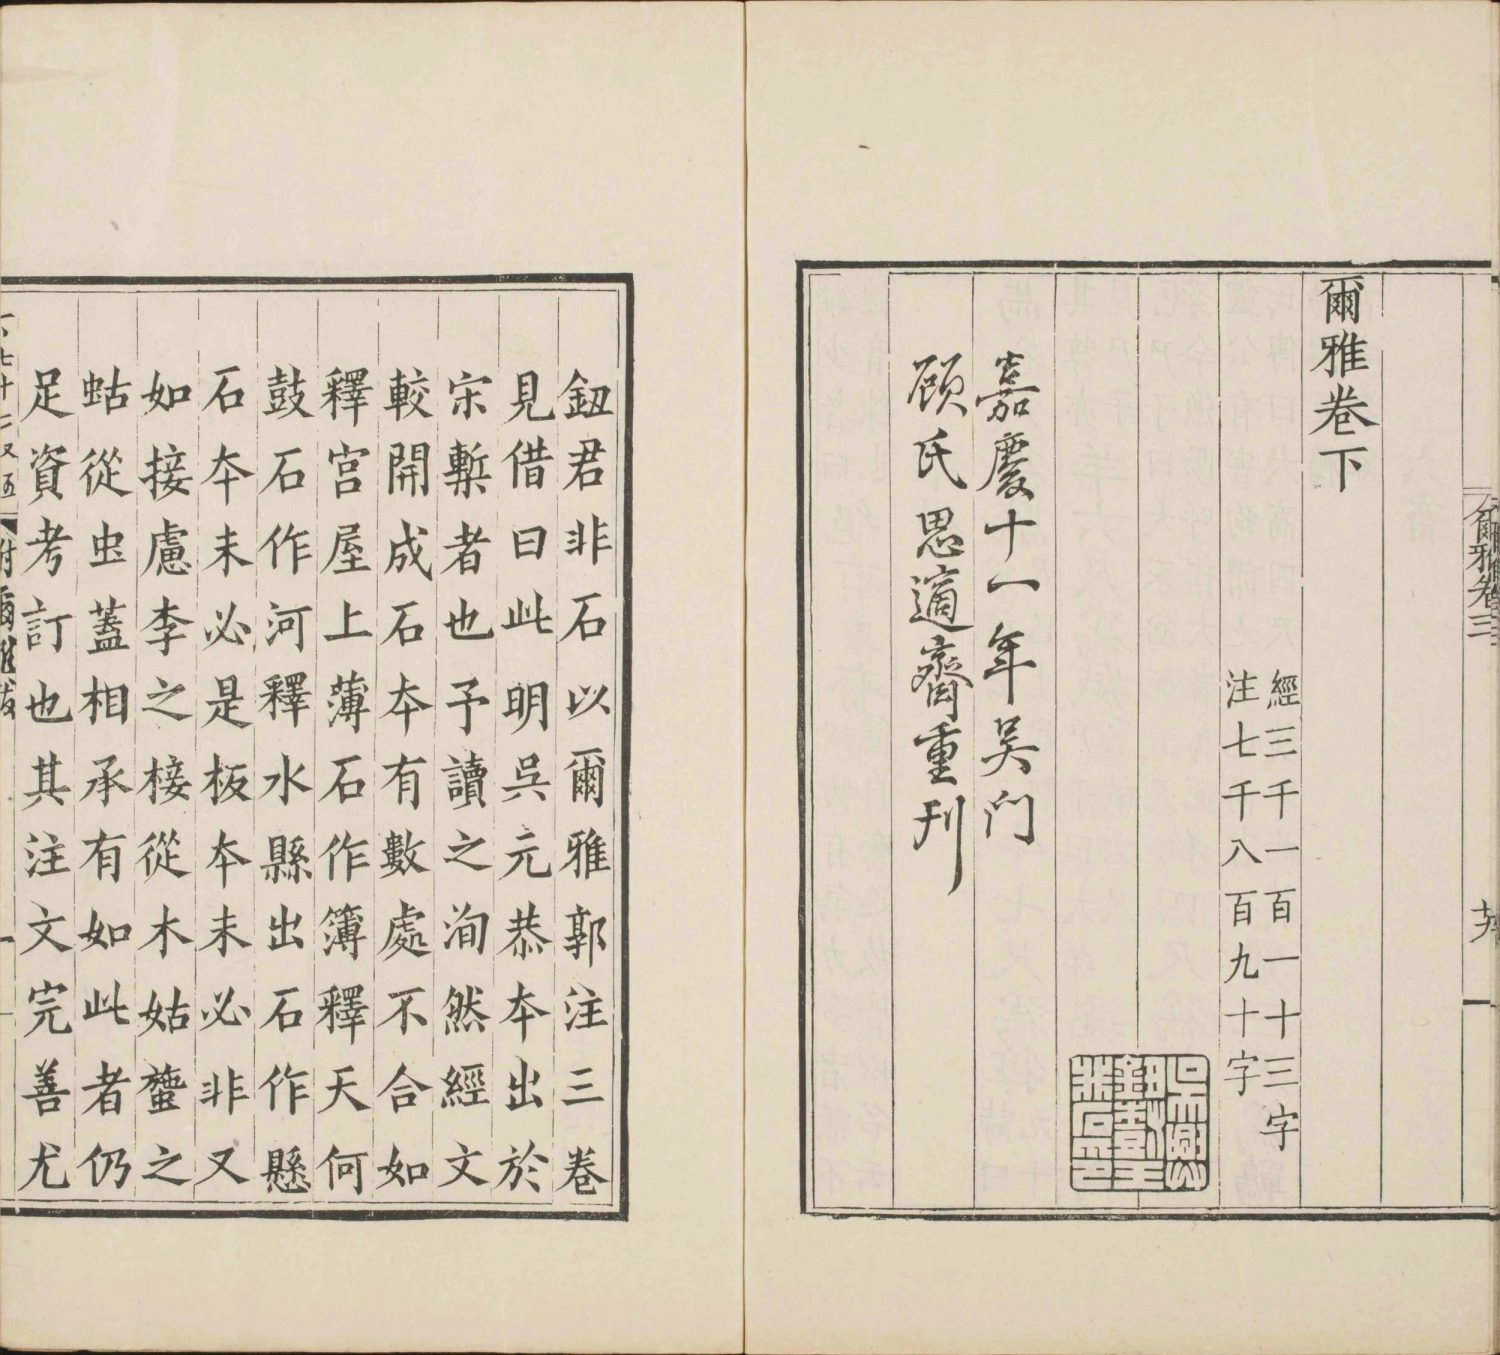 爾雅卷下
經三千一百一十三字
注七千八百九十字
嘉慶十一年吴门
顾氏思適齋重刊
爾雅卷三
鈕君非石以爾雅郭注三卷
見借曰此明呉元恭本出於
宋槧者也予讀之洵然經文
較開成石本有數處不合如
釋宫屋上薄石作簿釋天何
鼓石作河釋水縣出石作懸
石本未必是板本未必非又
如接慮李之椄從木姑䗐之
蛄從虫蓋相承有如此者仍
足資考訂也其注文完善尤